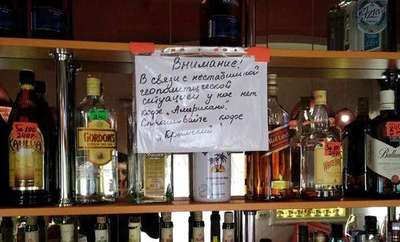 Внимание!
В связи с нестабильной
геополитической
ситуацией у нас нет
кофе „Американо".
Спрашивайте кофе
„Крымский"
GORDON'S
Ballantine's